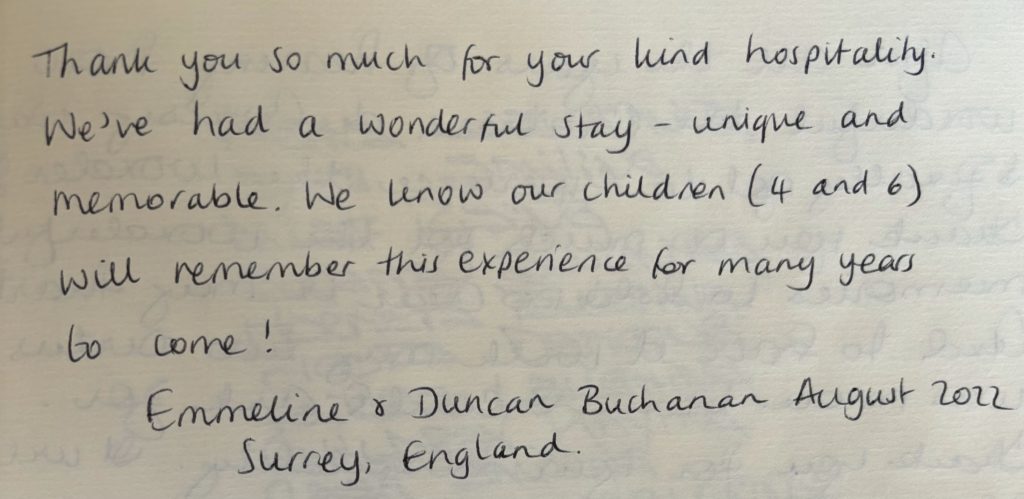 Thank you so much for your kind hospitality.
We've had a wonderful stay – unique and
memorable. We know our children (4 and 6)
will remember this experience for many years
to come!
Emmeline & Duncan Buchanan August 2022
Surrey, England.